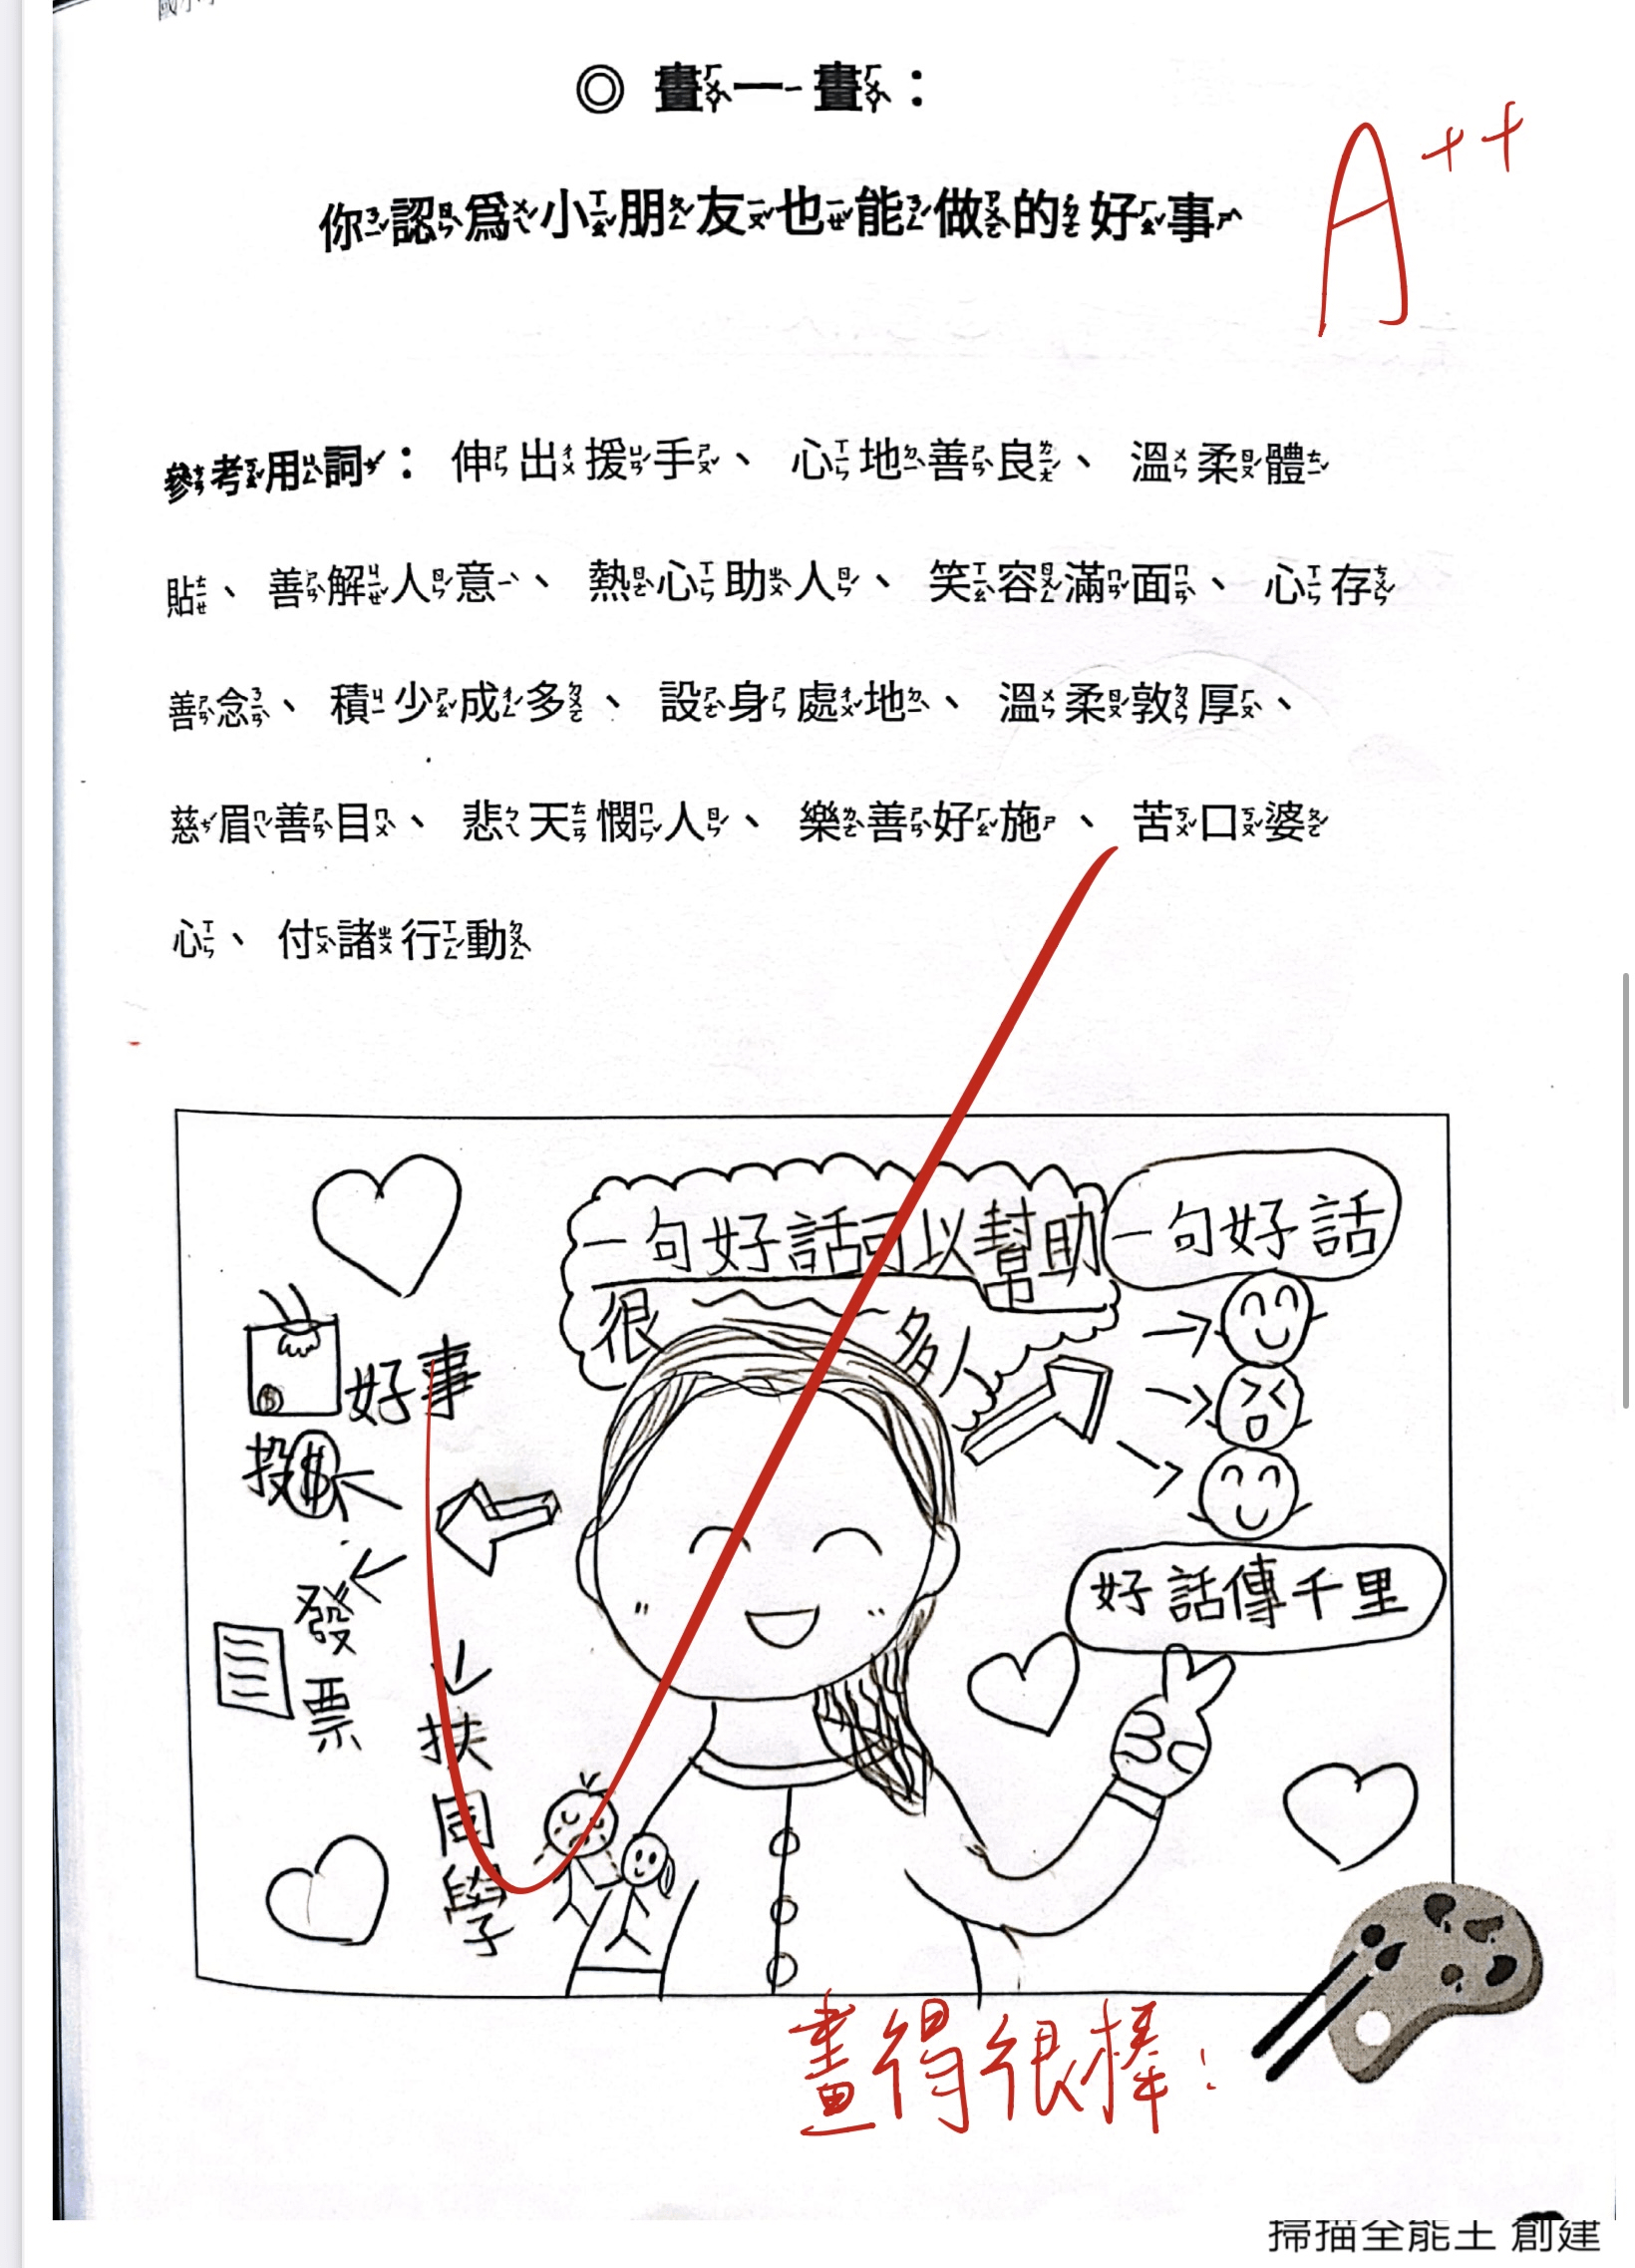 ◎ 畫一畫：
你認為小朋友也能做的好事
A++
參考用詞：伸出援手、心地善良、溫柔體
貼、善解人意、熱心助人、笑容滿面、心存
善念、積少成多、設身處地、溫柔敦厚、
慈眉善目、悲天憫人、樂善好施、苦口婆
心、付諸行動
一句好話可以幫助
很多人
一句好話
好事
投$
發票
扶同學
好話傳千里
畫得很棒!
掃描全能王 創建